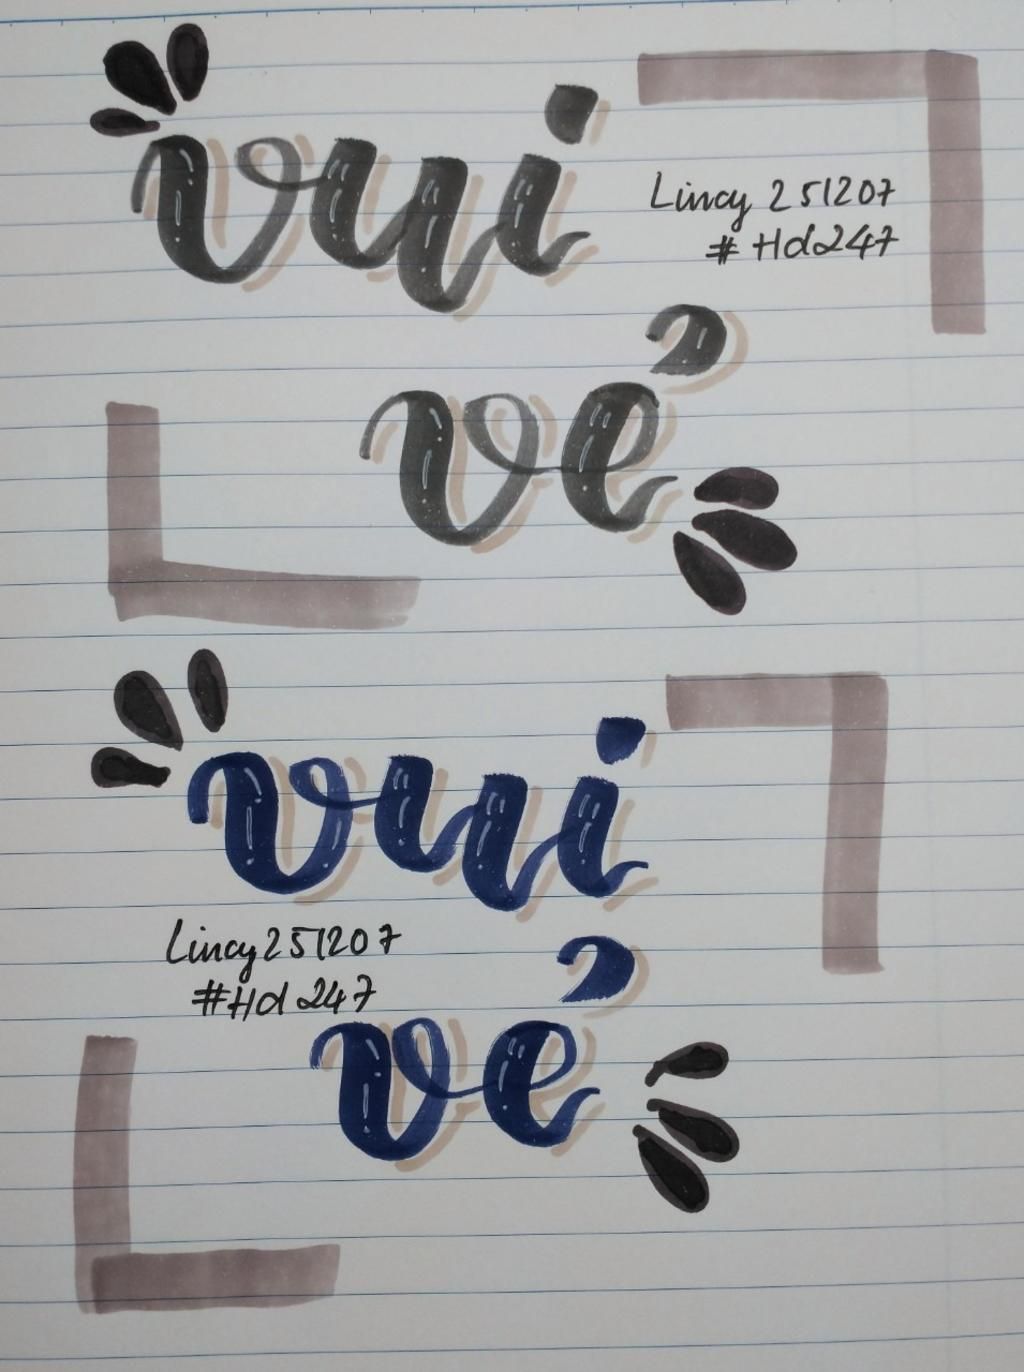 vui
Lincy 251207
# Hd247
vẻ
vui
Lincy251207
#Hd 247
vẻ